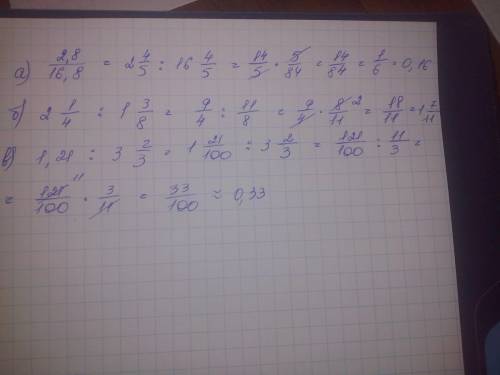 а) 2,8/16,8 = 2 4/5 : 16 4/5 = 14/5 · 5/84 = 14/84 = 1/6 = 0,16
б) 2 1/4 : 1 3/8 = 9/4 : 11/8 = 9/4 · 8/11 2 = 18/11 = 1 7/11
в) 1,21 : 3 2/3 = 1 21/100 : 3 2/3 = 121/100 : 11/3 =
= 121/100 11 · 3/11 = 33/100 ≈ 0,33